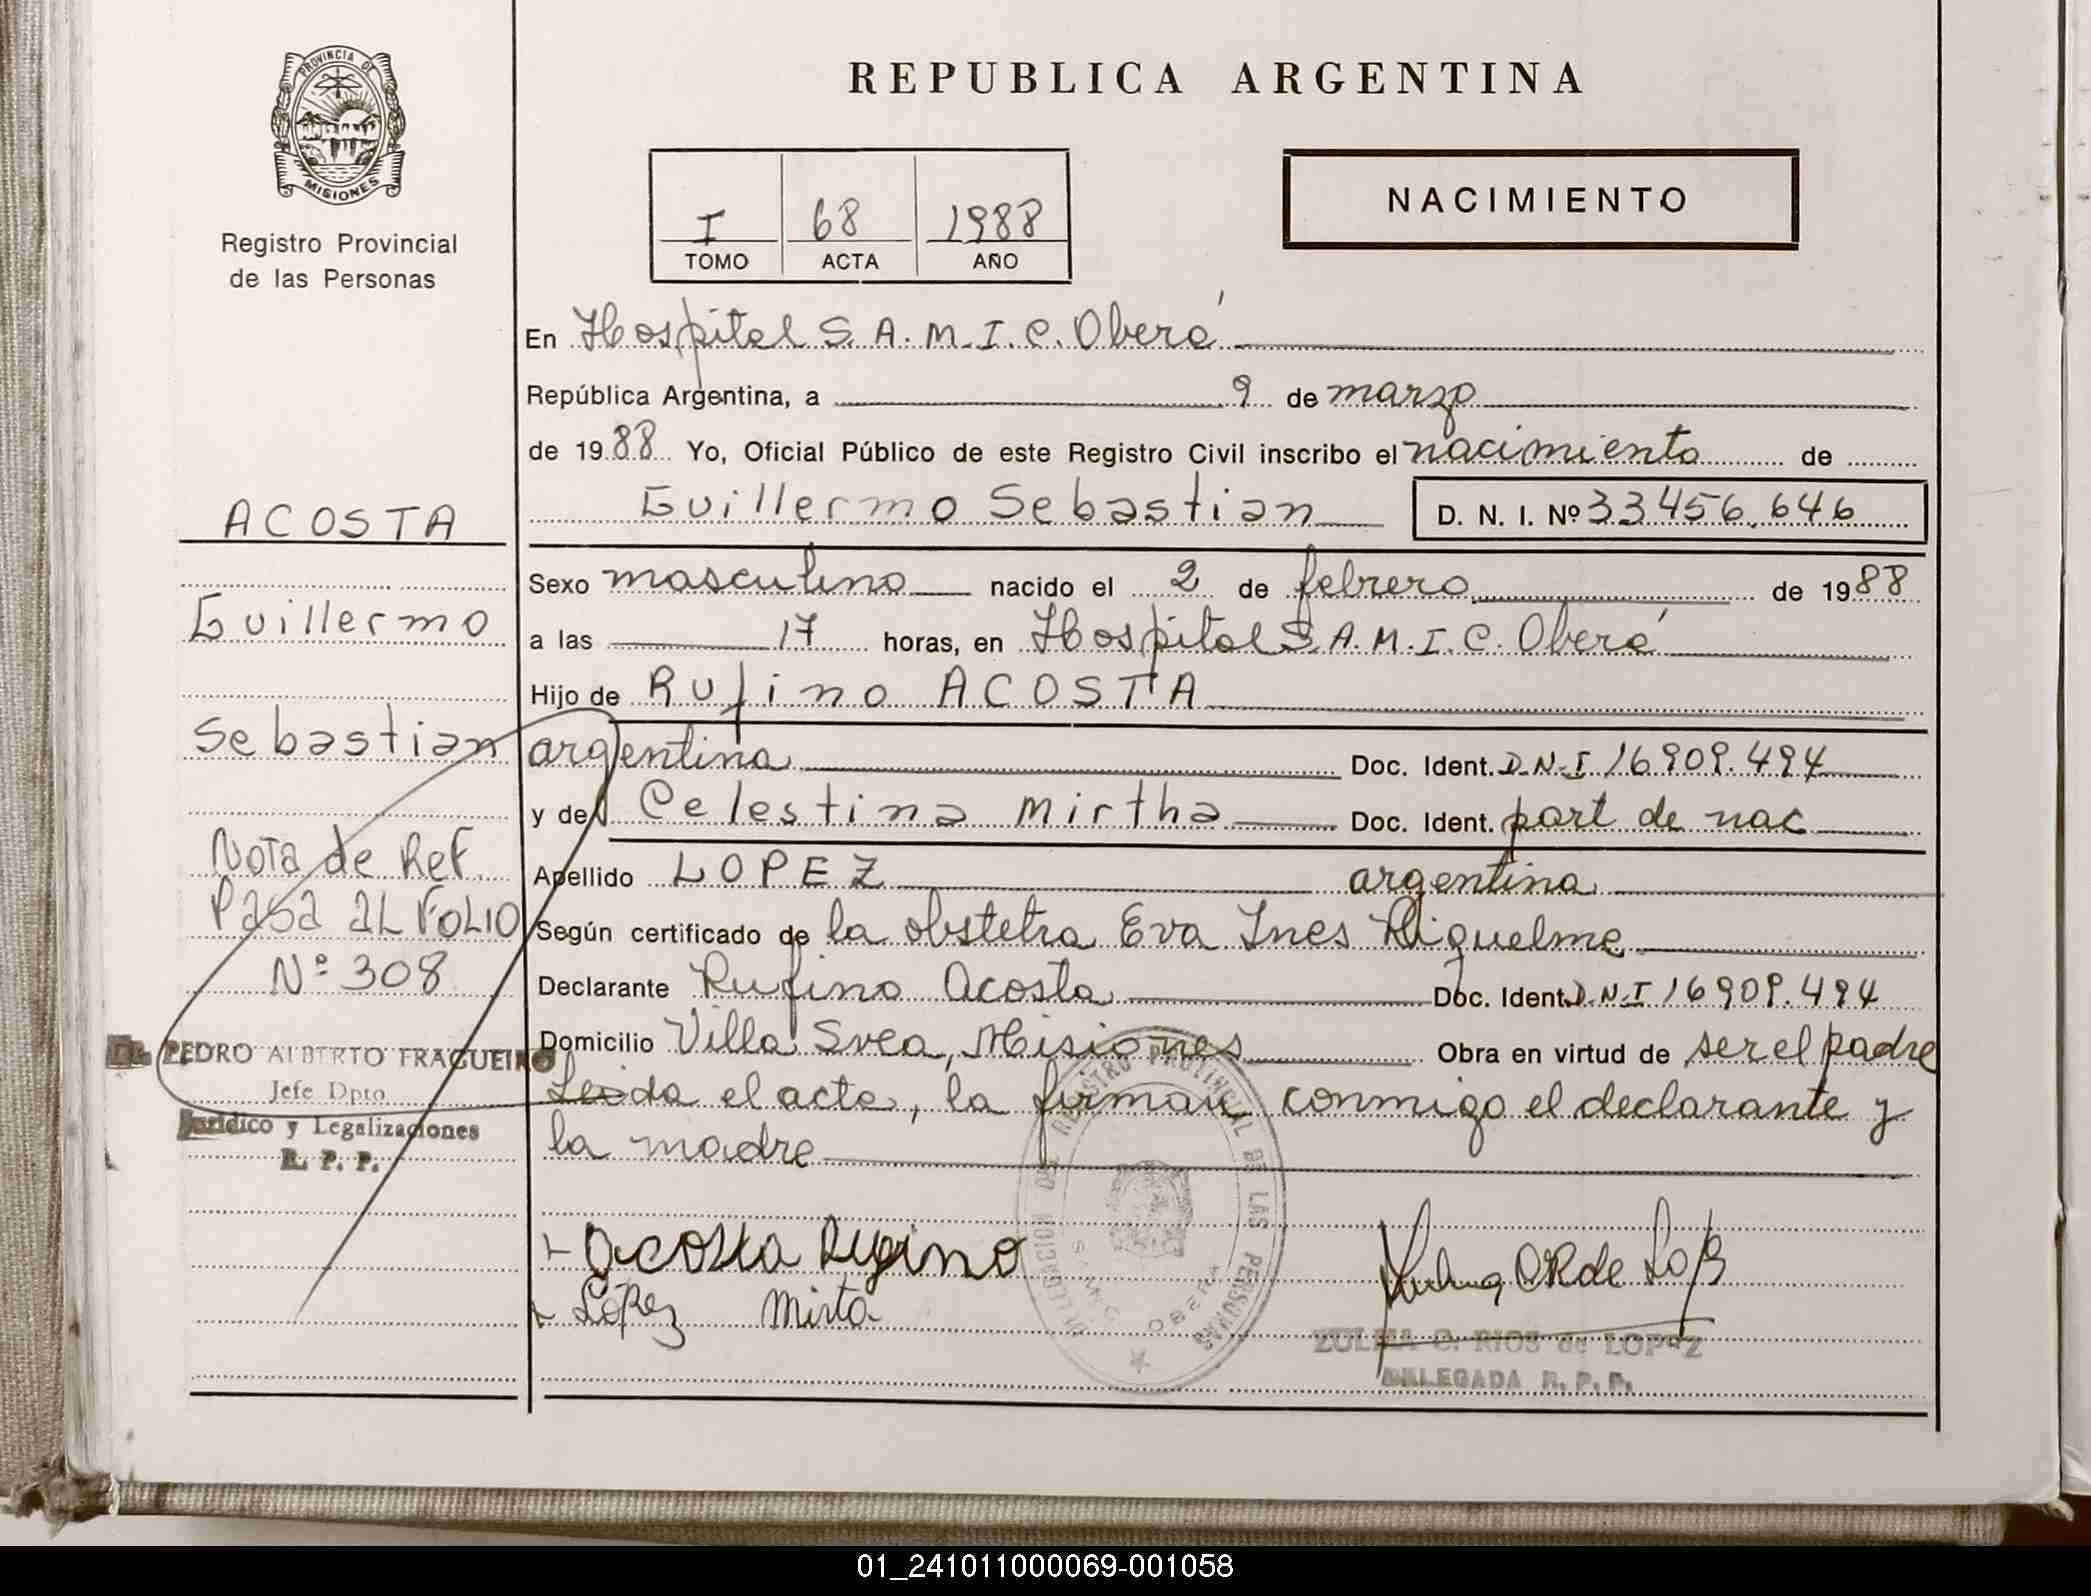 PROVINCIA DE
MISIONES
Registro Provincial
de las Personas
REPUBLICA ARGENTINA
I 68 1988
TOMO ACTA AÑO
NACIMIENTO
En Hospital S.A.M.I.C. Oberá
República Argentina, a 9 de marzo
de 1988 Yo, Oficial Público de este Registro Civil inscribo el nacimiento de
Guillermo Sebastian D. N. I. Nº 33456.646
Sexo masculino nacido el 2 de febrero de 1988
a las 17 horas, en Hospital S.A.M.I.C. Oberá
Hijo de Rufino ACOSTA
argentina Doc. Ident. D.N.I 16909.494
y de Celestina Mirtha Doc. Ident. part de nac
Apellido LOPEZ argentina
Según certificado de la obstetra Eva Ines Riquelme
Declarante Rufino Acosta Doc. Ident. D.N.I 16909.494
Domicilio Villa Svea, Misiones Obra en virtud de ser el padre
Leida el acta, la firman conmigo el declarante y
la madre
Acosta Rufino
López Mirta
ZULMA O. RIOS de LOPEZ
DELEGADA R. P. P.
REGISTRO PROVINCIAL DE LAS PERSONAS
SAMIC OBERA
ACOSTA
Guillermo
Sebastian
Nota de Ref.
Pasa al Folio
Nº 308
Dr. PEDRO ALBERTO FRAGUEIRO
Jefe Dpto
Jurídico y Legalizaciones
R. P. P.
01_241011000069-001058